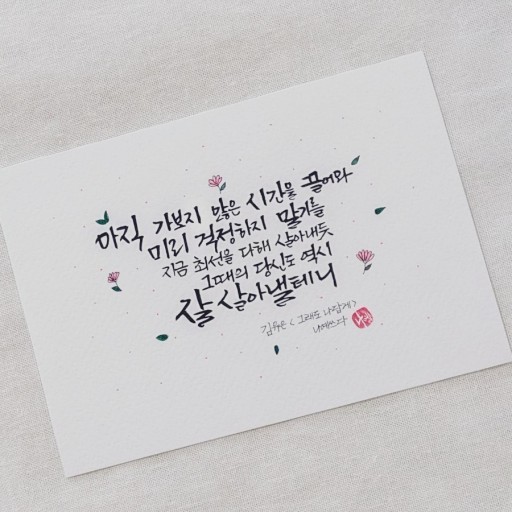 아직 가보지 않은 시간을 끌어와
미리 걱정하지 말기를
지금 최선을 다해 살아내듯
그때의 당신도 역시
잘 살아낼테니
김유은 <그래도 나답게>
나예쓰다